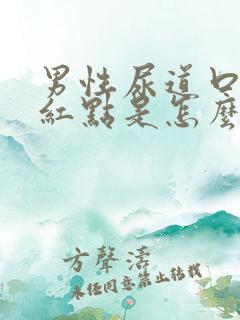 男性尿道口
紅點是怎麼
方聲濤
未經同意禁止轉載